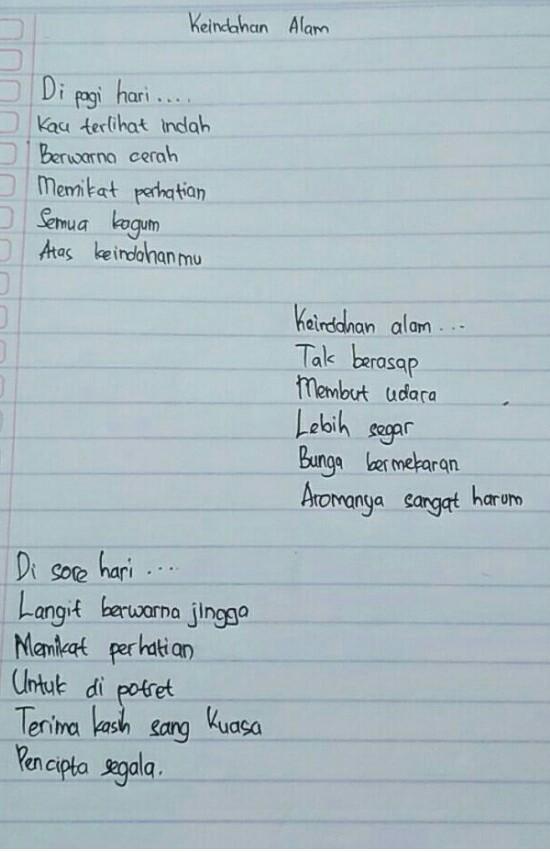 Keindahan Alam
Di pagi hari....
Kau terlihat indah
Berwarna cerah
Memikat perhatian
Semua kagum
Atas keindahanmu
Keinddhan alam...
Tak berasap
Membut udara
Lebih segar
Bunga bermekaran
Aromanya sangat harum
Di sore hari....
Langit berwarna jingga
Memikat perhatian
Untuk di potret
Terima kasih sang Kuasa
Pencipta segala.